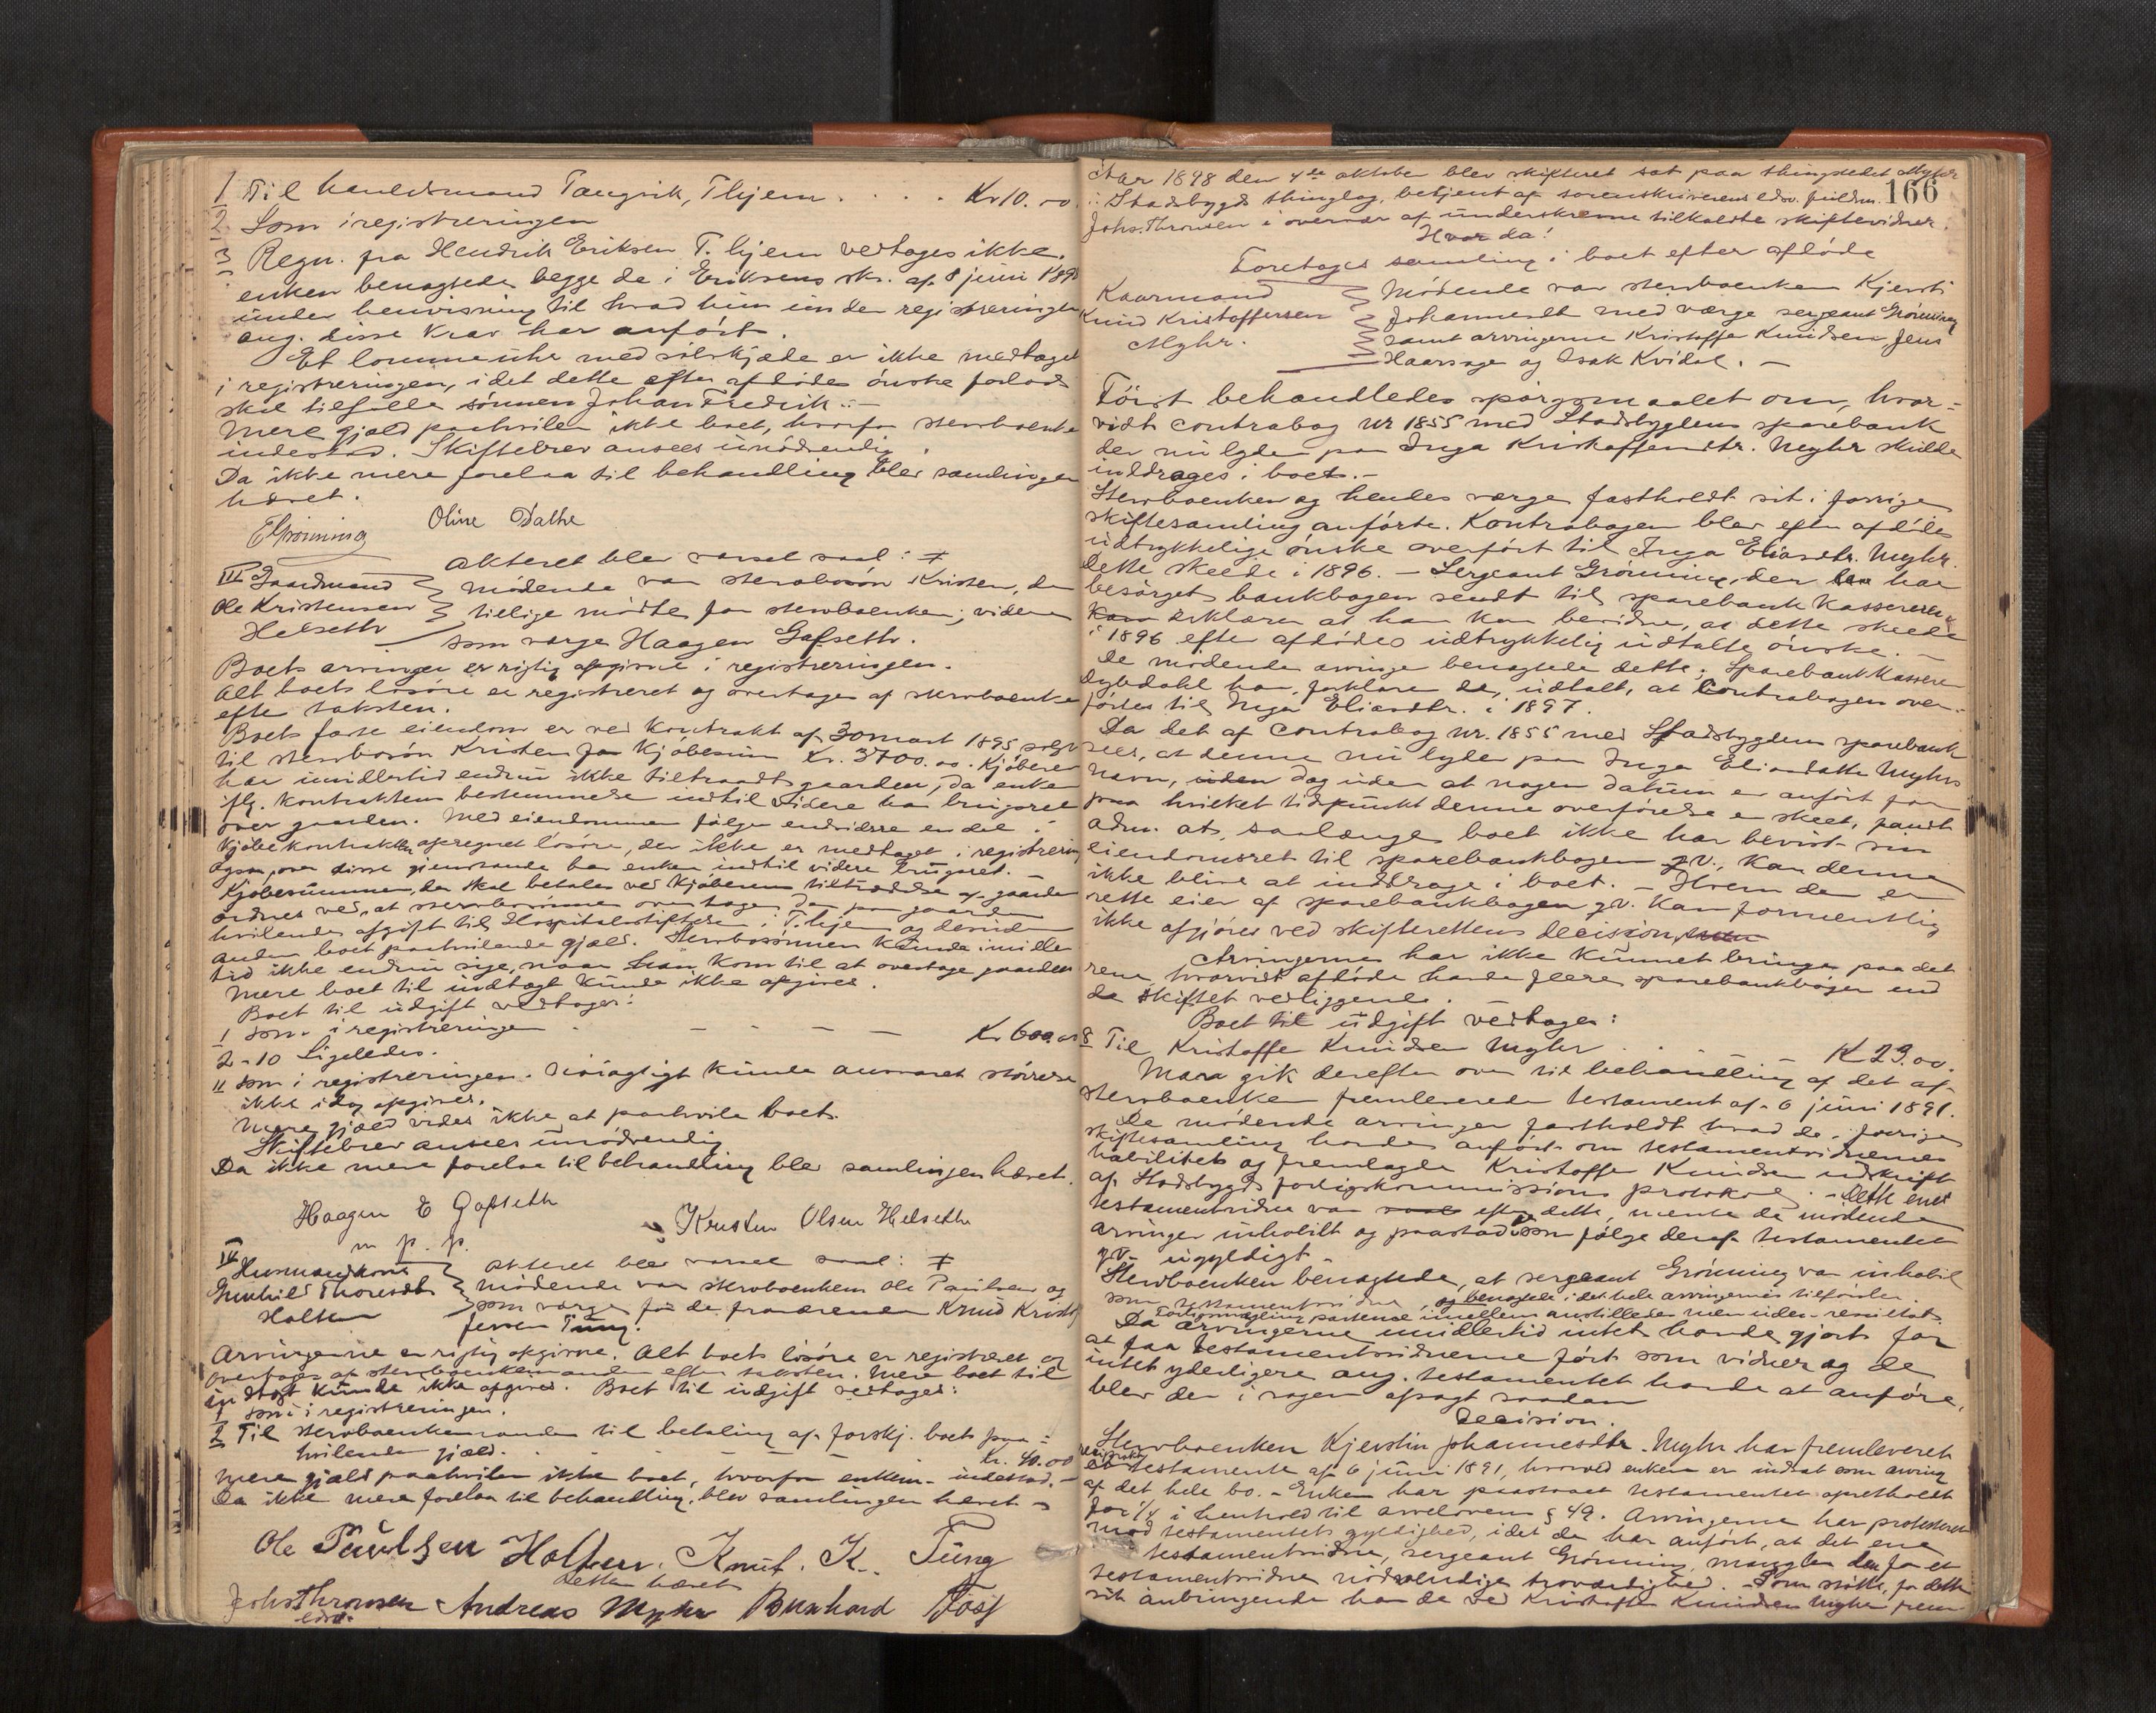 1 Til handelsmand Tangvik, Thjem . . . . Kr 10.00.
2 Som i registreringen
3 Regn. fra Hendrik Eriksen T.hjem vedtages ikke.
enken benægtede begge de i Eriksens skr. af 8 juni 1898
under henvisning til hvad hun under registreringen
ang. disse krav har anført.
Et lommeuhr med sølvkjæde er ikke medtaget
i registreringen, idet dette efter afdødes ønske forlods
skal tilfalde sønnen Johan Fredrik. –
Mere gjæld paahviler ikke boet, hvorfor stervboenken
indestod. Skiftebrev ansees unødvendig.
Da ikke mere forelaa til behandling blev samlingen
hævet.
EGrønning Oline Dathe
III Gaardmand
Ole Kristensen
Helseth
akteret blev varsel saal: ≠
mødende var stervbosøn Kristen, der
tillige mødte for stervboenken; videre
som værge Haagen Gafseth.
Boets arvinger er rigtig opgivne i registreringen.
Alt boets løsøre er registreret og overtages af stervboenken
efter taksten.
Boets faste eiendom er ved kontrakt af 30 mart 1895 solgt
til stervbosøn Kristen for kjøbesum Kr. 3700.00. Kjøberen
har imidlertid endnu ikke tiltraadt gaarden, da enken
iflg. kontraktens bestemmelse indtil videre har brugsret
over gaarden. Med eiendommen følger endvidere en del i
kjøbekontrakten opregnet løsøre, der ikke er medtaget i registrering
ogsaa over disse gjenstande har enken indtil videre brugsret. –
Kjøbesummen, der skal betales ved kjøberens tiltrædelse af gaarden
ordnes ved, at stervbosønnen overtager den paa gaarden
hvilende afgift til Hospitalsstiftelsen i T.hjem og desuden
anden boet paahvilende gjæld. Stervbosønnen kunde imidler-
tid ikke endnu sige, naar han kom til at overtage gaarden
Mere boet til indtægt kunde ikke opgives.
Boet til udgift vedtages:
1 som i registreringen . – – – – Kr 600.00
2–10 Ligeledes.
11 som i registreringen. Nøiagtigt kunde ansvaret størrelse
ikke idag opgives.
Mere gjæld vides ikke at paahvile boet.
Skiftebrev ansees unødvendig
Da ikke mere forelaa til behandling blev samlingen hævet.
Haagen E Gafseth
m p. p.
Kristen Olsen Helseth
IV
Husmandskone
Gunhild Thoresdtr
Holten
akteret blev varsel saal: ≠
mødende var stervboenkem. Ole Paulsen og
som værge for de fraværende Knud Kristof-
fersen Tung.
Arvingerne er rigtig opgivne. Alt boets løsøre er registreret og
overtages af stervboenkemanden efter taksten. Mere boet til
indtægt kunde ikke opgives. Boet til udgift vedtages:
1 som i registreringen.
2 Til stervboenkemanden til betaling af forskj. boet paa-
hvilende gjæld. . . . . Kr. 40.00
Mere gjæld paahviler ikke boet, hvorfor enkem. indestod. –
Da ikke mere forelaa til behandling, blev samlingen hævet –
Ole Paulsen Holten. Knut. K.. Tung
Retten hævet
Johs Thronsen Andreas Myhr Bernhard Foss
edsv.
166
Aar 1898 den 4de oktober blev skifteret sat paa thingstedet Myhr
i Stadsbygds thinglag, betjent af sorenskriverens edsv. fuldm.
Johs. Thronsen i overvær af underskrevne tilkaldte skiftevidner.
Hvor da!
Foretoges samling i boet efter afdøde
Kaarmand
Knud Kristoffersen
Myhr.
Mødende var stervboenken Kjersti
Johannesdt med værge sergeant Grønning
samt arvingerne Kristoffer Knudsen, Jens
Haarsage og Isak Kvidal. –
Først behandledes spørgsmaalet om, hvor-
vidt contrabog nr 1855 med Stadsbygdens sparebank
der nu lyder paa Inga Kristoffersdtr. Myhr skulde
inddrages i boet. –
Stervboenken og hendes værge fastholdt sit i forrige
skiftesamling anførte. Kontrabogen blev efter afdødes
udtrykkelige ønske overført til Inga Eliasdtr. Myhr.
Dette skeede i 1896. – Sergeant Grønning, der har
besørget bankbogen sendt til sparebank kassereren
erklærer at han kan bevidne, at dette skeede
i 1896 efter afdødes udtrykkelig udtalte ønske. –
De mødende arvinger benægtede dette. Sparebankkasserer
Dybdahl har, forklarer de, udtalt, at Contrabogen over-
førtes til Inga Eliasdtr. i 1897.
Da det af Contrabog nr. 1855 med Stadsbygdens sparebank
sees, at denne nu lyder paa Inga Eliasdatter Myhrs
navn, dog uden at nogen datum er anført paa
paa hvilket tidspunkt denne overførelse er skeet, fandt
adm. at, saalænge boet ikke har bevist sin
eiendomsret til sparebankbogen gv., kan denne
ikke blive at inddrage i boet. – Hvem der er
rette eier af sparebankbogen gv. kan formentlig
ikke afgjøres ved skifterettens decision,
Arvingerne har ikke kunnet bringe paa det
rene, hvorvidt afdøde havde flere sparebankbøger end
de skiftet vedliggende.
Boet til udgift vedtages:
8 Til Kristoffer Knudsen Myhr . . – – K 23.00.
Man gik derefter over til behandling af det af
stervboenken fremleverede testament af 6 juni 1891.
De mødende arvinger fastholdt hvad de i forrige
skiftesamling havde anført om testamentsvidnernes
habilitet og fremlagde Kristoffer Knudsen udskrift
af Stadsbygds forligskommissions protokol. – Dette ene
testamentsvidne var efter dette, mente de mødende
arvinger inhabilt og paastod som følge deraf testamentet
gv. ugyldigt –
Stervboenken benægtede, at sergeant Grønning var inhabil
som testamentsvidne, og benægtede i det hele arvingernes tilførsler.
Forligsmægling partene imellem anstilledes men uden resultat.
Da arvingerne imidlertid intet havde gjort for
at faa testamentsvidnerne ført som vidner og de
intet yderligere ang. testamentet havde at anføre,
blev der i sagen afsagt saadan
Decision.
Stervboenken Kjerstin Johannesdtr. Myhr har fremleveret
testamente af 6 juni 1891, hvorved enken er indsat som arving
af det hele bo. – Enken har paastaaet testamentet opretholdt
for 1/4 i henhold til arveloven § 49. Arvingerne har protesteret
mod testamentets gyldighed, idet de har anført, at det ene
testamentsvidne, sergeant Grønning mangler den for et
testamentsvidne nødvendige troværdighed. – Som støtte for dette
sit anbringende har de ved Kristoffer Knudsen Myhr frem-